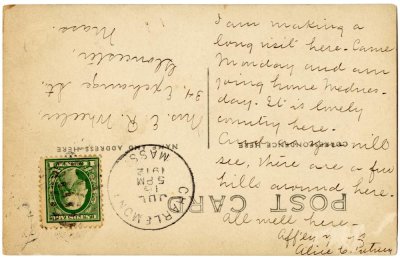 I am making a
long visit here. Came
Monday and am
going home Wednes-
day. It is lovely
country here.
And as you will
see, there are a few
hills around here.
All well here.
Aff'ly
Alice E. Putnam
Mrs. E. R. Wheeler
34 Exchange St.
Gloucester,
Mass.
POST CARD
CORRESPONDENCE HERE
NAME AND ADDRESS HERE
CHARLEMONT
MASS
JUL
15
5 PM
1912
U.S. POSTAGE